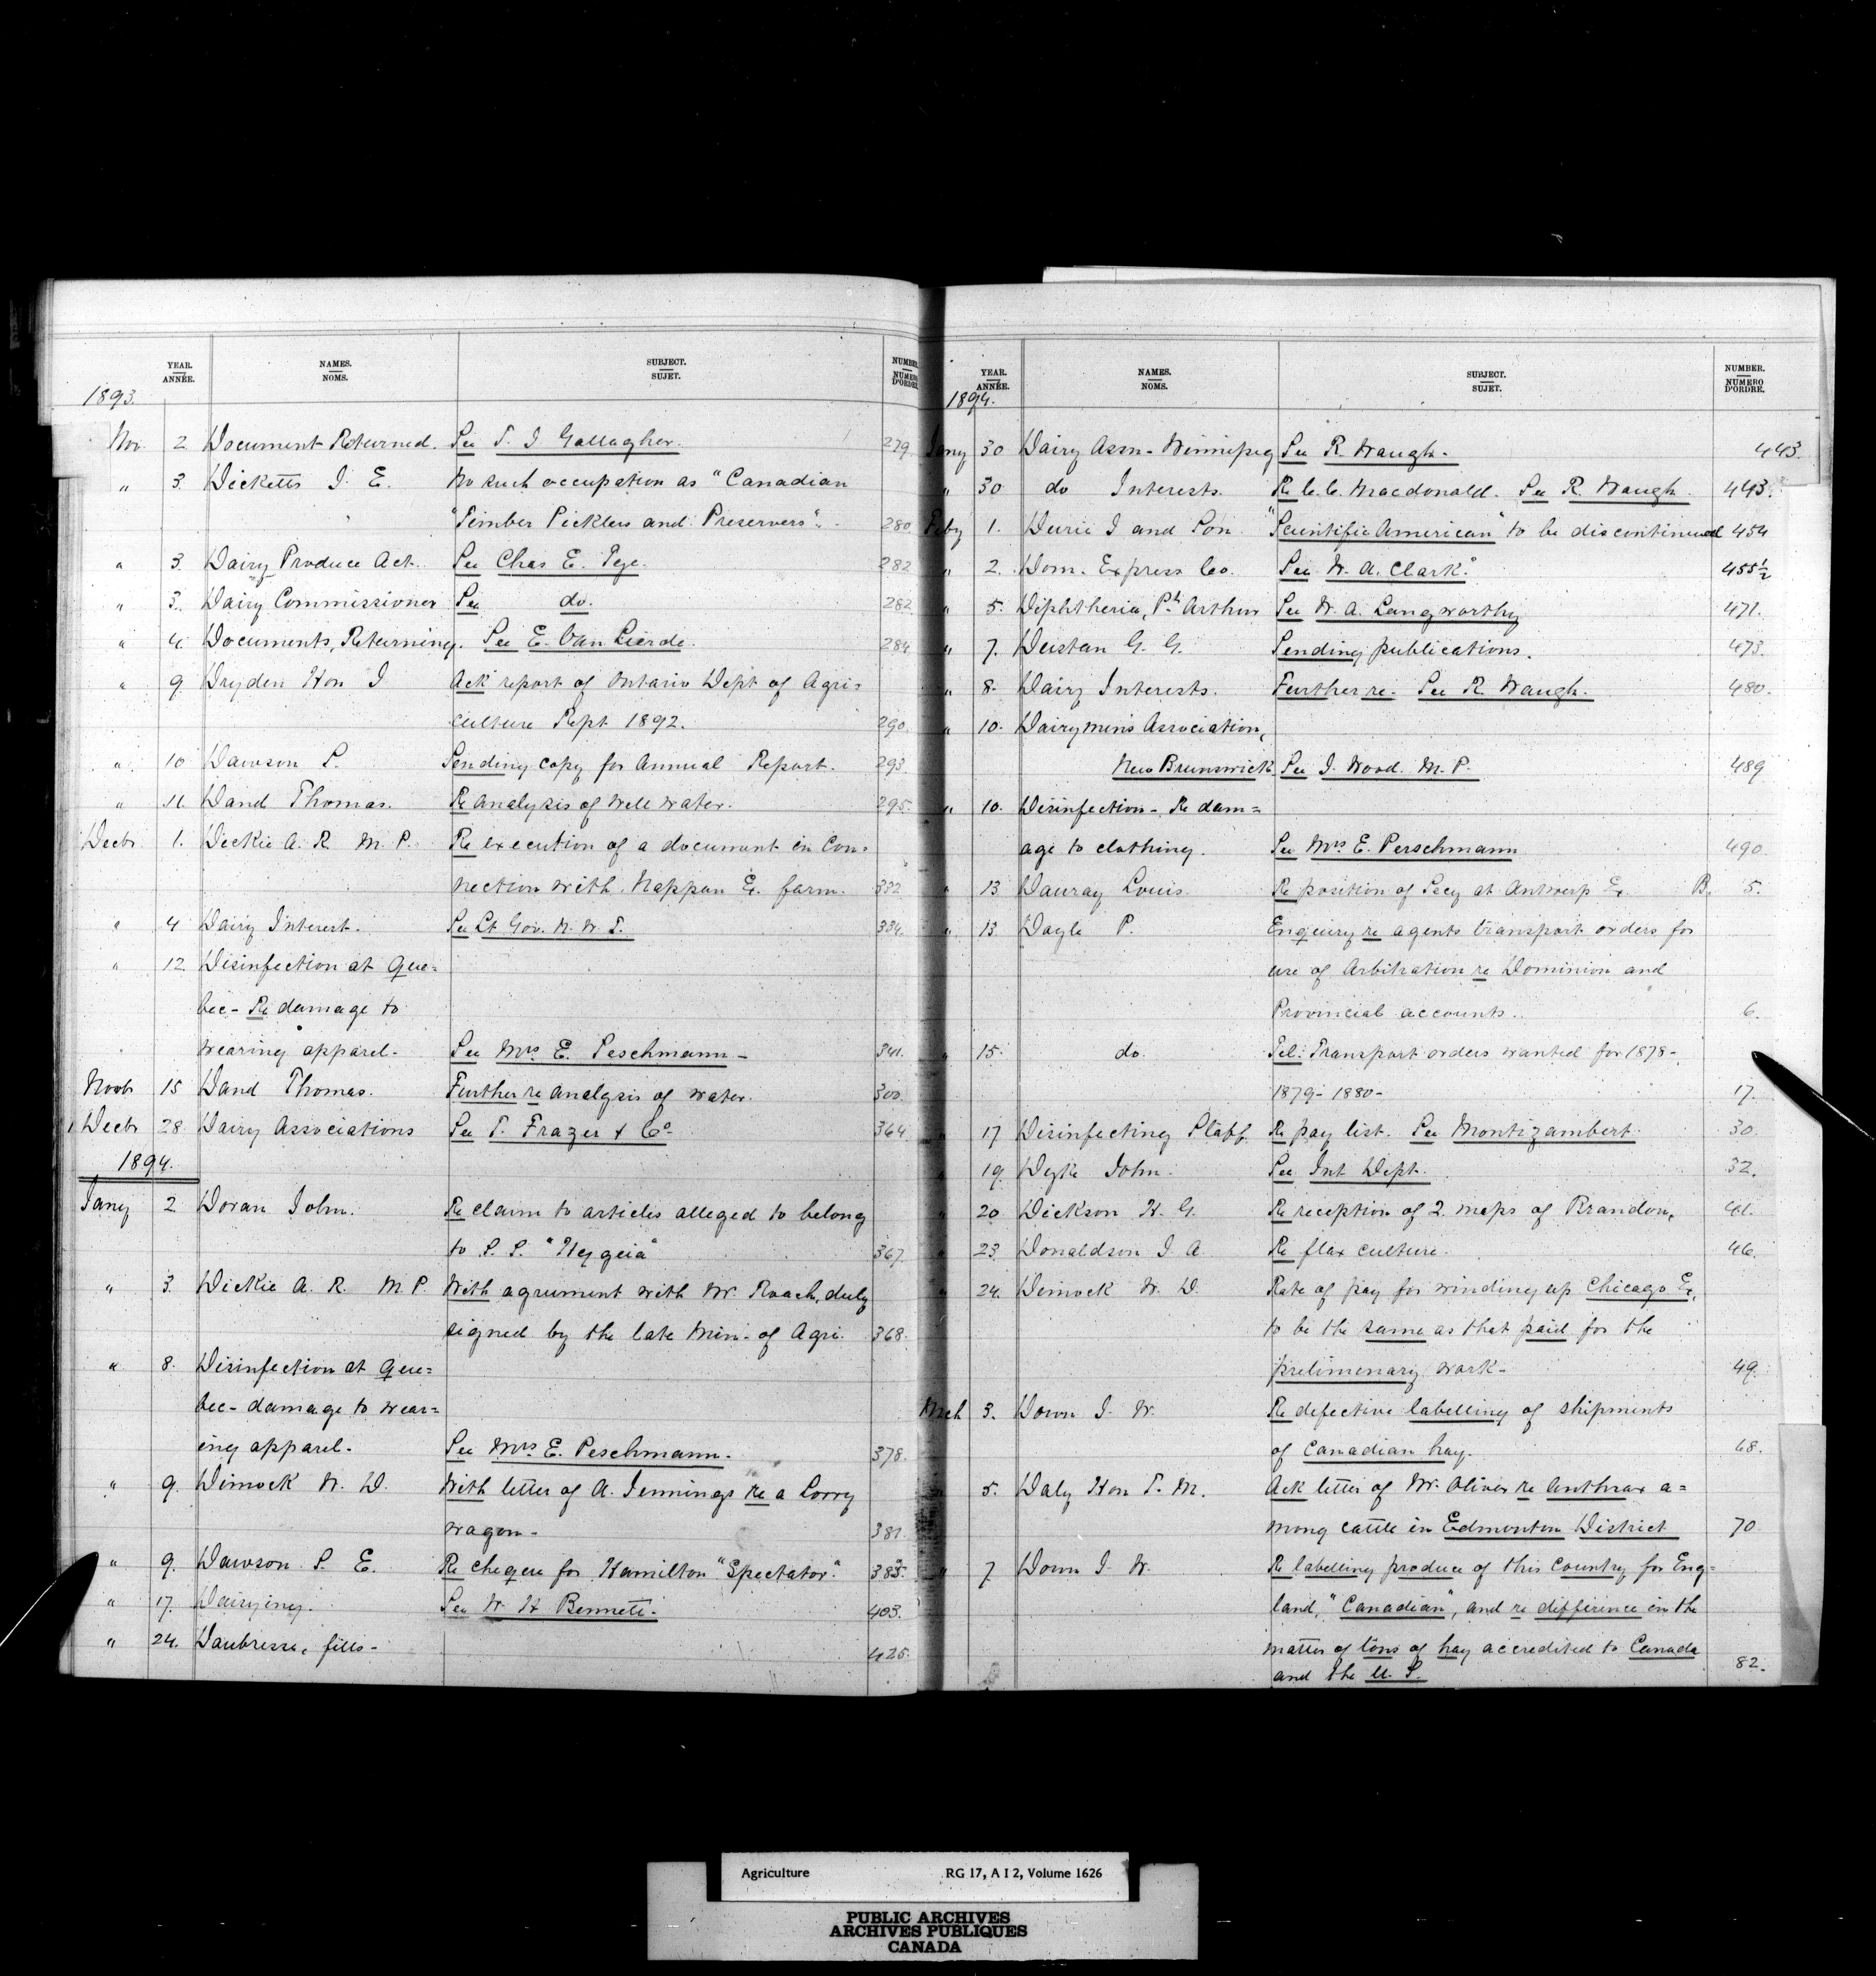 YEAR. NAMES. SUBJECT. NUMBER.
ANNÉE. NOMS. SUJET. NUMERO D'ORDRE.
1893.
Nov. 2. Document Returned. See T. J Gallagher. 279.
" 3. Dicketts J. E. No such occupation as "Canadian
"Timber Picklers and Preservers". 280.
" 3. Dairy Produce Act. See Chas E. Pege. 282
" 3. Dairy Commissioner See do. 282
" 4. Documents, Returning. See E. Van Lierde. 284.
" 9. Dryden Hon J Ack report of Ontario Dept of Agri=
culture Sept 1892. 290.
" 10 Dawson S. Sending copy for Annual Report. 293.
" 11. Dand Thomas. Re analysis of well water. 295.
Decbr 1. Dickie A. R. M. P. Re execution of a document in Con=
nection with Nappan E. farm. 332.
" 4 Dairy Interest. See Lt Gov. N. W. T. 334.
" 12. Disinfection at Que=
bec - Re damage to
wearing apparel. See Mrs E. Peschmann - 341.
Novbr 15 Dand Thomas. Further re analysis of water. 300.
Decbr 28. Dairy Associations See T. Frazer & Co. 364.
1894.
Jany 2. Doran John. Re claim to articles alleged to belong
to S. S. "Hygeia" 367.
" 3. Dickie A. R. M. P. With agrument with W. Roach, duly
signed by the late Min- of Agri. 368.
" 8. Disinfection at Que=
bec - damage to wear=
ing apparel. See Mrs E. Peschmann. 378.
" 9. Dimock W. D. With letter of A. Jennings re a Lorry
wagon- 381.
" 9. Dawson S. E. Re cheque for Hamilton "Spectator". 385.
" 17. Dairying. See W. H Bennett. 403.
" 24. Daubresse, fills- 425.
YEAR. NAMES. SUBJECT. NUMBER.
ANNÉE. NOMS. SUJET. NUMERO D'ORDRE.
1894.
Jany 30 Dairy Assn- Winnipeg See R. Waugh- 443.
" 30 do Interests. Re C. C. Macdonald. See R. Waugh. 443.
Feby 1. Durie J and Son. "Scientific American" to be discontinued 454
" 2. Dom. Express Co. See W. A. Clark. 455½
" 5. Diphtheria, Pt Arthur See W. A. Langworthy 471.
" 7. Dustan G. G. Sending publications. 473.
" 8. Dairy Interests. Further re- See R. Waugh. 480.
" 10. Dairymens Association,
New Brunswick See J. Wood. M. P. 489
" 10. Disinfection - Re dam=
age to clothing. See Mrs E. Perschmann 490
" 13 Dauray Louis. Re position of Secy at Antwerp Ex. B. 5.
" 13. Dayle P. Enquiry re agents transport orders for
use of Arbitration re Dominion and
Provincial accounts. 6.
" 15. do. Tel: Transport orders wanted for 1878-
1879- 1880- 17.
" 17 Disinfecting Staff. Re pay list. See Montizambert. 30.
" 19. Dyke John. See Int Dept. 32.
" 20 Dickson H. G. Re reception of 2 maps of Brandon, 41.
" 23. Donaldson J. A. Re flax culture. 46.
" 24. Dimock W. D. Rate of pay for winding up Chicago Ex,
to be the same as that paid for the
prelimenary work- 49.
Mch 3. Down J. W. Re defective labelling of shipments
of Canadian hay. 68.
" 5. Daly Hon T. M. Ack letter of Mr. Oliver re Anthrax a=
mong cattle in Edmonton District 70
" 7. Down J. W. Re labelling produce of this Country for Eng=
land, "Canadian", and re difference in the
matter of tons of hay accredited to Canada
and the U. S. 82.
Agriculture RG 17, A I 2, Volume 1626
PUBLIC ARCHIVES
ARCHIVES PUBLIQUES
CANADA